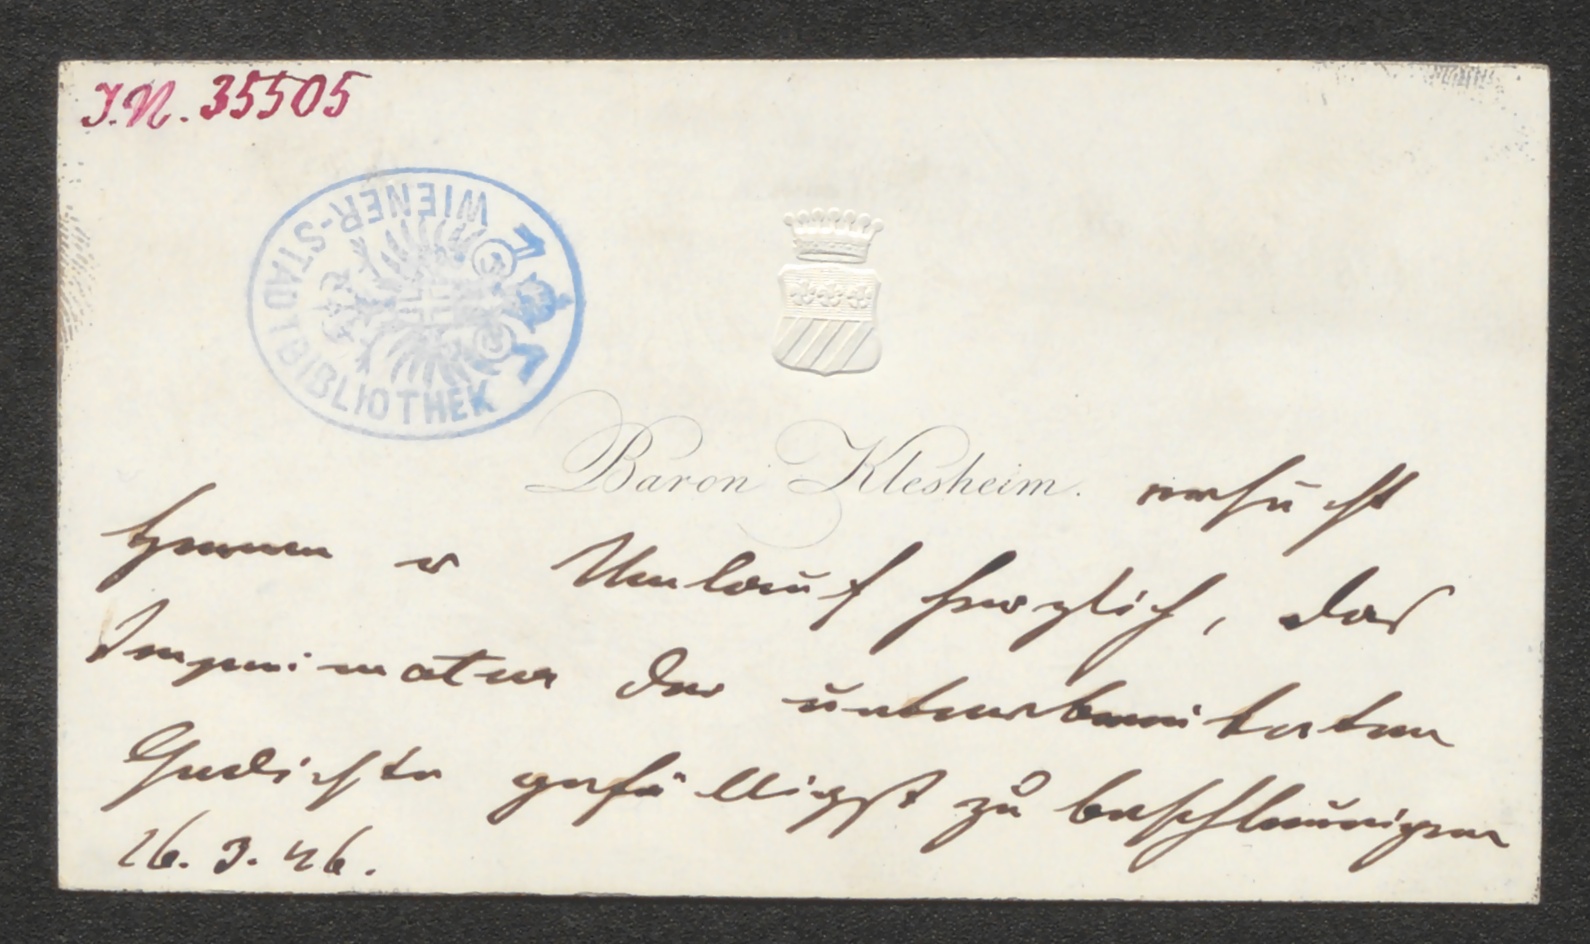 I.N. 35505
WIENER-STADTBIBLIOTHEK
Baron Klesheim. ersucht
Herren v Umlauf herzlich, das
Imprimatur der unterbreiteten
Gedichte gefälligst zu beschleunigen
26. 3. 46.